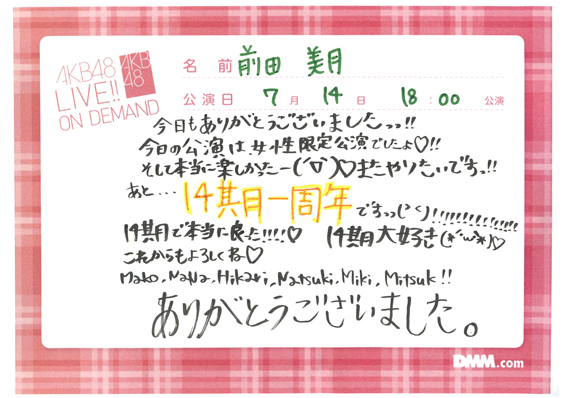 AKB48
LIVE!!
ON DEMAND
AKB
48
名 前 前田 美月
公演日 7月 14日 18:00 公演
今日もありがとうございましたっっ!!
今日の公演は女性限定公演でしたよ♡!!
そして本当に楽しかったー(˘▽˘)♡またやりたいですっ!!
あと...
14期月一周年ですっっ(˘く˘)!!!!!!!!!!!!!
14期で本当に良った!!!!♡ 14期大好き(*˘ω˘*)♡
これからもよろしくね♡
Mako, Nana, Hikari, Natsuki, Miki, Mitsuk!!
ありがとうございました。
DMM.com